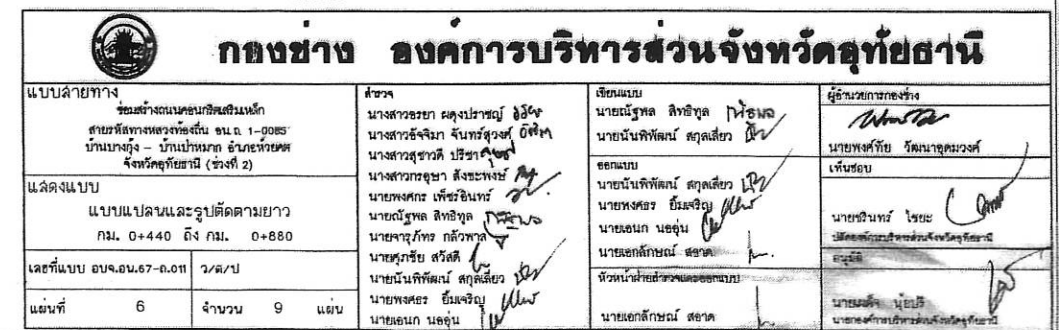 กองช่าง องค์การบริหารส่วนจังหวัดอุทัยธานี
แบบสายทาง
ซ่อมสร้างถนนคอนกรีตเสริมเหล็ก
สายรหัสทางหลวงท้องถิ่น อน.ถ. 1-0085
บ้านบางกุ้ง - บ้านป่าหมาก อำเภอห้วยคต
จังหวัดอุทัยธานี (ช่วงที่ 2)
แสดงแบบ
แบบแปลนและรูปตัดตามยาว
กม. 0+440 ถึง กม. 0+880
เลขที่แบบ อบจ.อน.67-ถ.011 ว/ด/ป
แผ่นที่ 6 จำนวน 9 แผ่น
สำรวจ
นางสาวอรยา ผดุงปราชญ์
นางสาวอัจจิมา จันทร์สุวงศ์
นางสาวสุชาวดี ปรีชา
นางสาวกรอุษา สังชะพงษ์
นายพงศกร เพ็ชร์อินทร์
นายณัฐพล สิทธิทูล
นายจารุภัทร กลัวพาล
นายศุภชัย สวัสดี
นายนันพิพัฒน์ สกุลเลี่ยว
นายพงศธร ยิ้มเจริญ
นายเอนก นออุ่น
เขียนแบบ
นายณัฐพล สิทธิทูล
นายนันพิพัฒน์ สกุลเลี่ยว
ออกแบบ
นายนันพิพัฒน์ สกุลเลี่ยว
นายพงศธร ยิ้มเจริญ
นายเอนก นออุ่น
นายเอกลักษณ์ สอาด
หัวหน้าฝ่ายสำรวจและออกแบบ
นายเอกลักษณ์ สอาด
ผู้อำนวยการกองช่าง
นายพงศ์ทัย วัฒนาอุดมวงศ์
เห็นชอบ
นายชรินทร์ ไชยะ
ปลัดองค์การบริหารส่วนจังหวัดอุทัยธานี
อนุมัติ
นายเผด็จ นุ้ยปรี
นายกองค์การบริหารส่วนจังหวัดอุทัยธานี